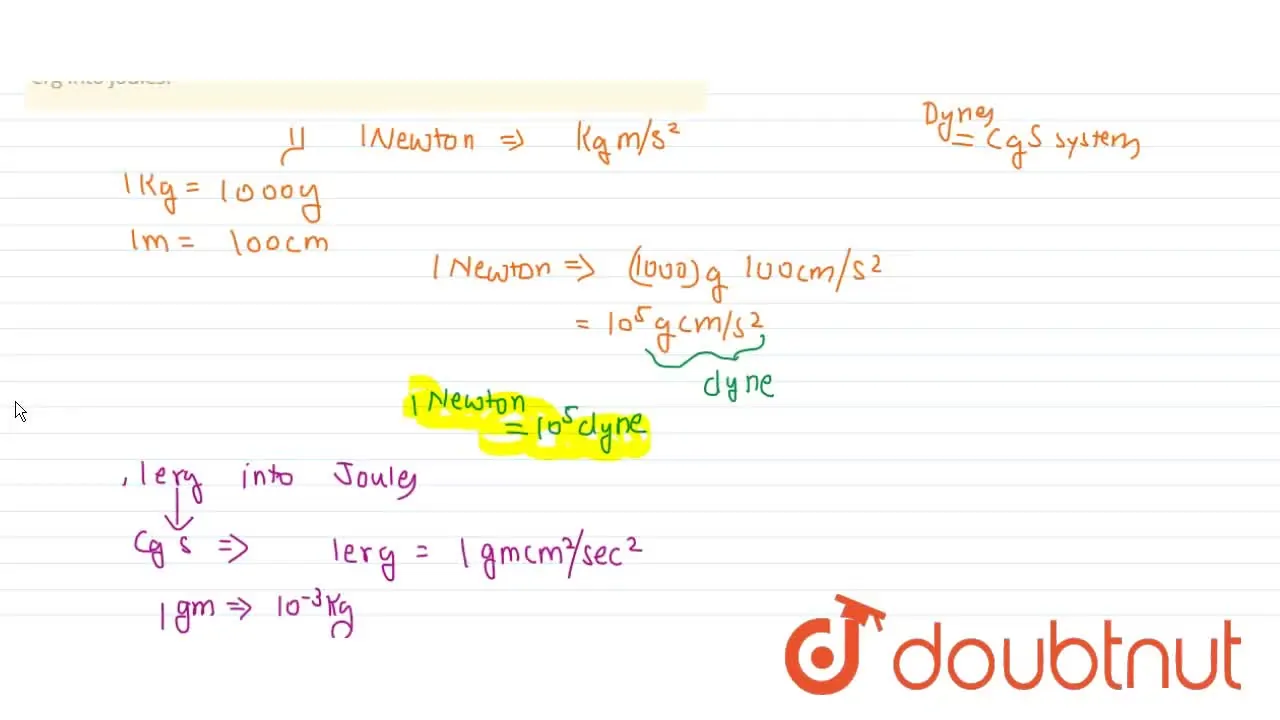 erg into joules.
Dynes
1 Newton ⇒ Kg m/s²
= CgS system
1 Kg = 1000g
1m = 100cm
1 Newton ⇒ (1000) g 100cm/s²
= 10⁵ g cm/s²
dyne
1 Newton
= 10⁵ dyne
, 1erg into Joules
Cg s ⇒ 1erg = 1 gmcm²/sec²
1 gm ⇒ 10⁻³ Kg
doubtnut